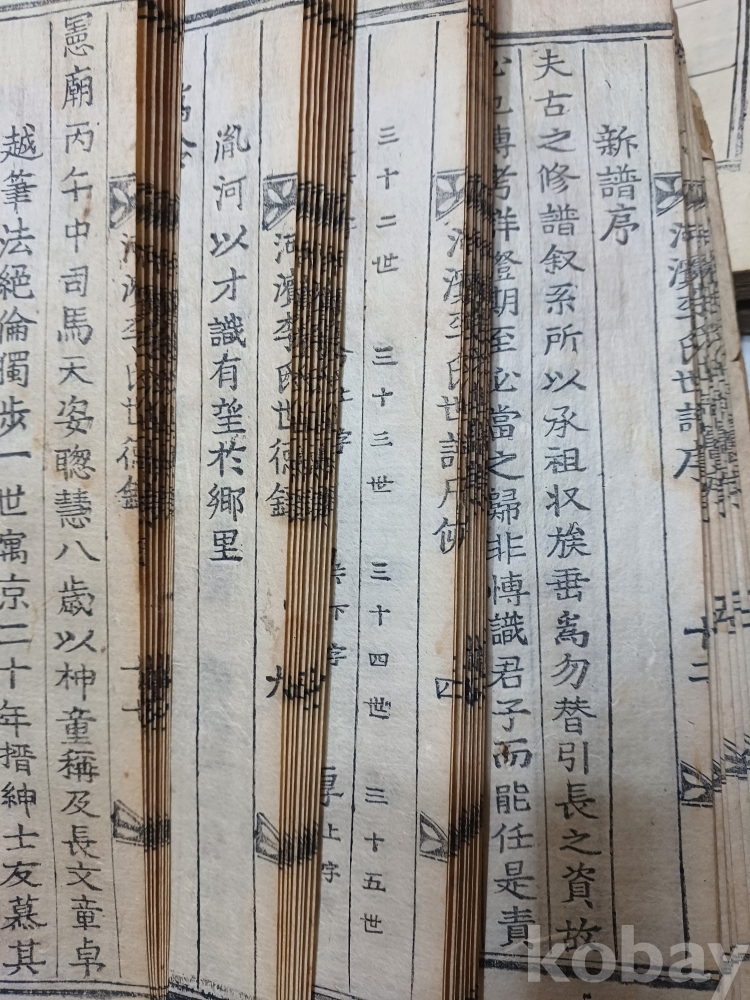 河濱李氏世譜序 十二
新譜序
夫古之修譜叙系所以承祖収族垂爲勿替引長之資故
必也博考詳證期至必當之歸非博識君子而能任是責
河濱李氏世譜凡例 四
三十二世 三十三世 三十四世 三十五世
下字 上字
河濱李氏世德錄 九
胤河以才識有望於鄉里
河濱李氏世德錄
憲廟丙午中司馬天姿聰慧八歲以神童稱及長文章卓
越筆法絕倫獨步一世寓京二十年搢紳士友慕其
kobay